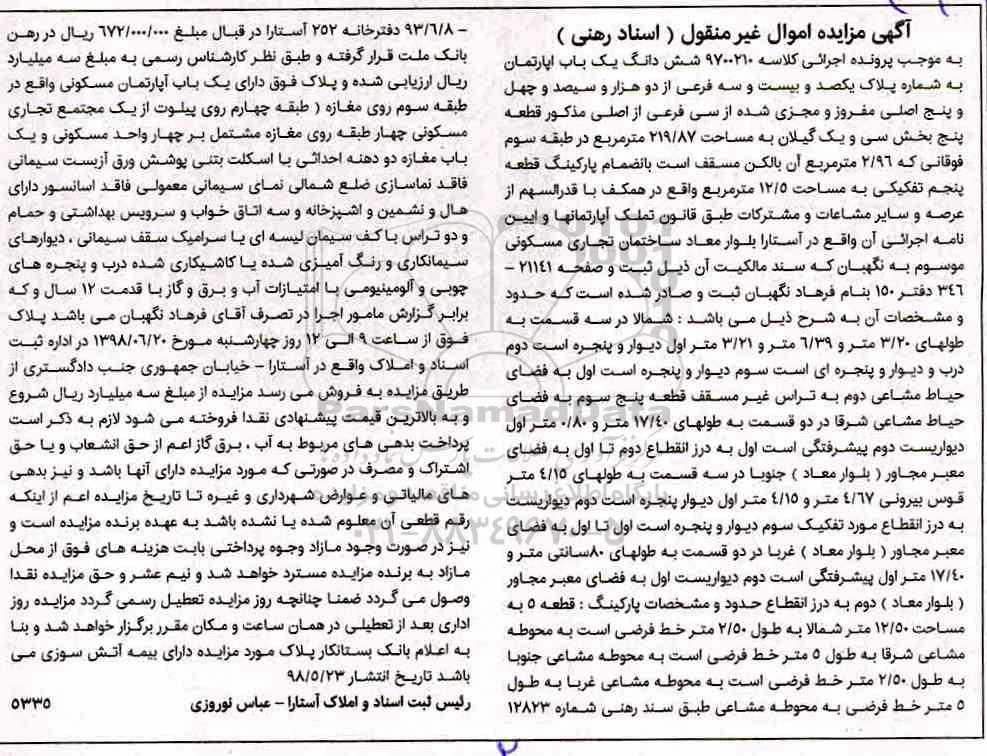 آگهی مزایده اموال غیر منقول ( اسناد رهنی )
به موجب پرونده اجرائی کلاسه ۹۷۰۰۲۱۰ شش دانگ یک باب اپارتمان
به شماره پلاک یکصد و بیست و سه فرعی از دو هزار و سیصد و چهل
و پنج اصلی مفروز و مجزی شده از سی فرعی از اصلی مذکور قطعه
پنج بخش سی و یک گیلان به مساحت ۲۱۹/۸۷ مترمربع در طبقه سوم
فوقانی که ۲/۹۶ مترمربع آن بالکن مسقف است بانضمام پارکینگ قطعه
پنجم تفکیکی به مساحت ۱۲/۵ مترمربع واقع در همکف با قدرالسهم از
عرصه و سایر مشاعات و مشترکات طبق قانون تملک آپارتمانها و ایین
نامه اجرائی آن واقع در آستارا بلوار معاد ساختمان تجاری مسکونی
موسوم به نگهبان که سند مالکیت آن ذیل ثبت و صفحه ۲۱۱۴۱ –
۳۴۶ دفتر ۱۵۰ بنام فرهاد نگهبان ثبت و صادر شده است که حدود
و مشخصات آن به شرح ذیل می باشد : شمالا در سه قسمت به
طولهای ۳/۲۰ متر و ۶/۳۹ متر و ۳/۲۱ متر اول دیوار و پنجره است دوم
درب و دیوار و پنجره ای است سوم دیوار و پنجره است اول به فضای
حیاط مشاعی دوم به تراس غیر مسقف قطعه پنج سوم به فضای
حیاط مشاعی شرقا در دو قسمت به طولهای ۱۷/۴۰ متر و ۰/۸۰ متر اول
دیواریست دوم پیشرفتگی است اول به درز انقطاع دوم تا اول به فضای
معبر مجاور ( بلوار معاد ) جنوبا در سه قسمت به طولهای ۴/۱۵ متر
قوس بیرونی ۴/۶۷ متر و ۴/۱۵ متر اول دیوار پنجره است دوم دیواریست
به درز انقطاع مورد تفکیک سوم دیوار و پنجره است اول تا اول به فضای
معبر مجاور ( بلوار معاد ) غربا در دو قسمت به طولهای ۸۰سانتی متر و
۱۷/۴۰ متر اول پیشرفتگی است دوم دیواریست اول به فضای معبر مجاور
( بلوار معاد ) دوم به درز انقطاع حدود و مشخصات پارکینگ : قطعه ۵ به
مساحت ۱۲/۵۰ متر شمالا به طول ۲/۵۰ متر خط فرضی است به محوطه
مشاعی شرقا به طول ۵ متر خط فرضی است به محوطه مشاعی جنوبا
به طول ۲/۵۰ متر خط فرضی است به محوطه مشاعی غربا به طول
۵ متر خط فرضی به محوطه مشاعی طبق سند رهنی شماره ۱۲۸۲۳
– ۹۳/۶/۸ دفترخانه ۲۵۲ آستارا در قبال مبلغ ۶۷۲/۰۰۰/۰۰۰ ریال در رهن
بانک ملت قرار گرفته و طبق نظر کارشناس رسمی به مبلغ سه میلیارد
ریال ارزیابی شده و پلاک فوق دارای یک باب آپارتمان مسکونی واقع در
طبقه سوم روی مغازه ( طبقه چهارم روی پیلوت از یک مجتمع تجاری
مسکونی چهار طبقه روی مغازه مشتمل بر چهار واحد مسکونی و یک
باب مغازه دو دهنه احداثی با اسکلت بتنی پوشش ورق آزبست سیمانی
فاقد نماسازی ضلع شمالی نمای سیمانی معمولی فاقد اسانسور دارای
هال و نشمین و اشپزخانه و سه اتاق خواب و سرویس بهداشتی و حمام
و دو تراس با کف سیمان لیسه ای یا سرامیک سقف سیمانی ، دیوارهای
سیمانکاری و رنگ آمیزی شده یا کاشیکاری شده درب و پنجره های
چوبی و آلومینیومی با امتیازات آب و برق و گاز با قدمت ۱۲ سال و که
برابر گزارش مامور اجرا در تصرف آقای فرهاد نگهبان می باشد پلاک
فوق از ساعت ۹ الی ۱۲ روز چهارشنبه مورخ ۱۳۹۸/۰۶/۲۰ در اداره ثبت
اسناد و املاک واقع در آستارا – خیابان جمهوری جنب دادگستری از
طریق مزایده به فروش می رسد مزایده از مبلغ سه میلیارد ریال شروع
و به بالاترین قیمت پیشنهادی نقدا فروخته می شود لازم به ذکر است
پرداخت بدهی های مربوط به آب ، برق گاز اعم از حق انشعاب و یا حق
اشتراک و مصرف در صورتی که مورد مزایده دارای آنها باشد و نیز بدهی
های مالیاتی و عوارض شهرداری و غیره تا تاریخ مزایده اعم از اینکه
رقم قطعی آن معلوم شده یا نشده باشد به عهده برنده مزایده است و
نیز در صورت وجود مازاد وجوه پرداختی بابت هزینه های فوق از محل
مازاد به برنده مزایده مسترد خواهد شد و نیم عشر و حق مزایده نقدا
وصول می گردد ضمنا چنانچه روز مزایده تعطیل رسمی گردد مزایده روز
اداری بعد از تعطیلی در همان ساعت و مکان مقرر برگزار خواهد شد و بنا
به اعلام بانک بستانکار پلاک مورد مزایده دارای بیمه آتش سوزی می
باشد تاریخ انتشار ۹۸/۵/۲۳
رئیس ثبت اسناد و املاک آستارا – عباس نوروزی
۵۳۳۵
ParsNamadData
پایگاه اطلاع رسانی مناقصه و مزایده
۰۲۱-۸۸۳۴۹۶۷۰-۵